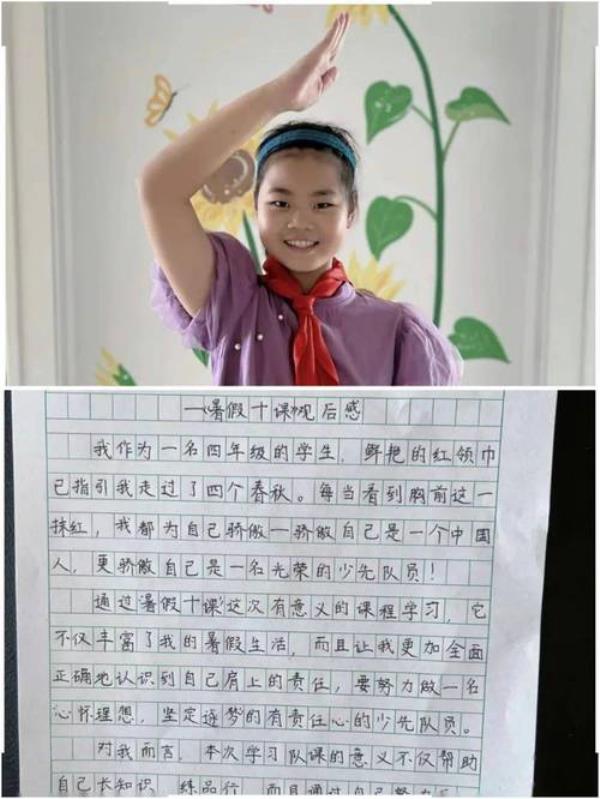 一《暑假十课》观后感
我作为一名四年级的学生，鲜艳的红领巾
已指引我走过了四个春秋。每当看到胸前这一
抹红，我都为自己骄傲一骄傲自己是一个中国
人，更骄傲自己是一名光荣的少先队员！
通过“暑假十课”这次有意义的课程学习，它
不仅丰富了我的暑假生活，而且让我更加全面
正确地认识到自己肩上的责任，要努力做一名
心怀理想，坚定逐梦的有责任心的少先队员。
对我而言，本次学习队课的意义不仅帮助
自己长知识、练品行，而且通过自己努力